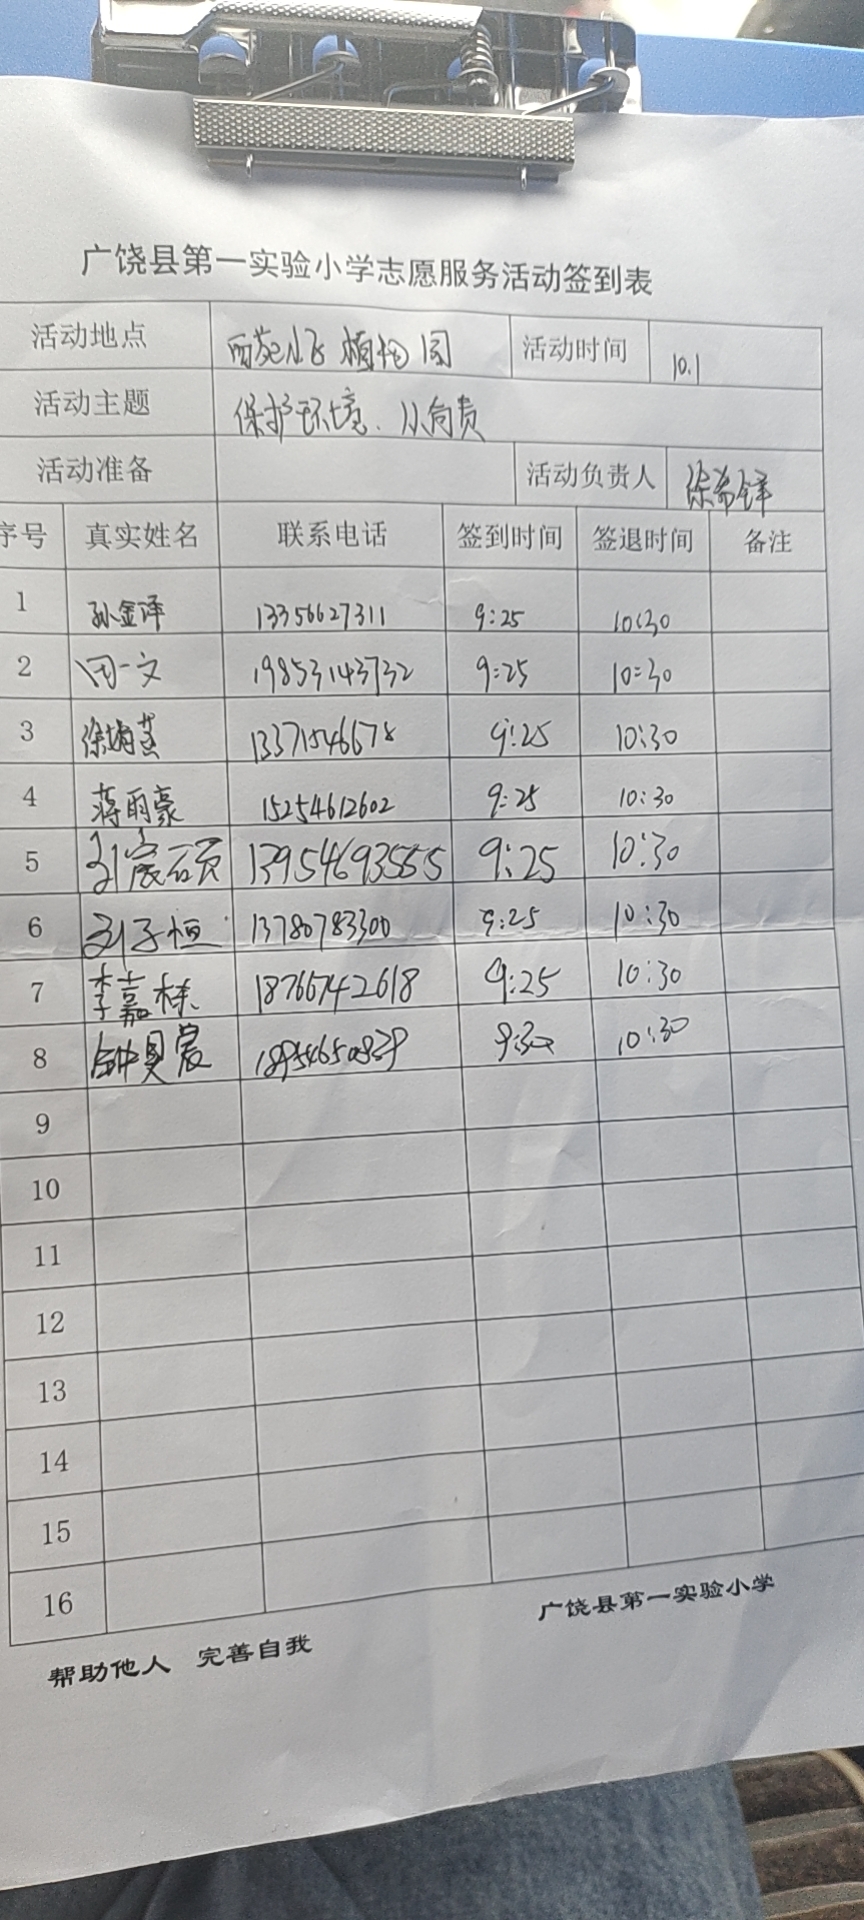 广饶县第一实验小学志愿服务活动签到表
活动地点 植物园 活动时间 10.1
活动主题 保护环境、人人有责
活动准备 活动负责人 徐希铎
序号 真实姓名 联系电话 签到时间 签退时间 备注
1 孙金泽 13356627311 9:25 10:30
2 田一文 19853143732 9:25 10:30
3 13371546678 9:25 10:30
4 蒋雨豪 15254612602 9:25 10:30
5 刘宸硕 13954693555 9:25 10:30
6 刘子恒 13780783300 9:25 10:30
7 李嘉栋 18766742618 9:25 10:30
8 18954650839 9:30 10:30
9
10
11
12
13
14
15
16
帮助他人 完善自我 广饶县第一实验小学